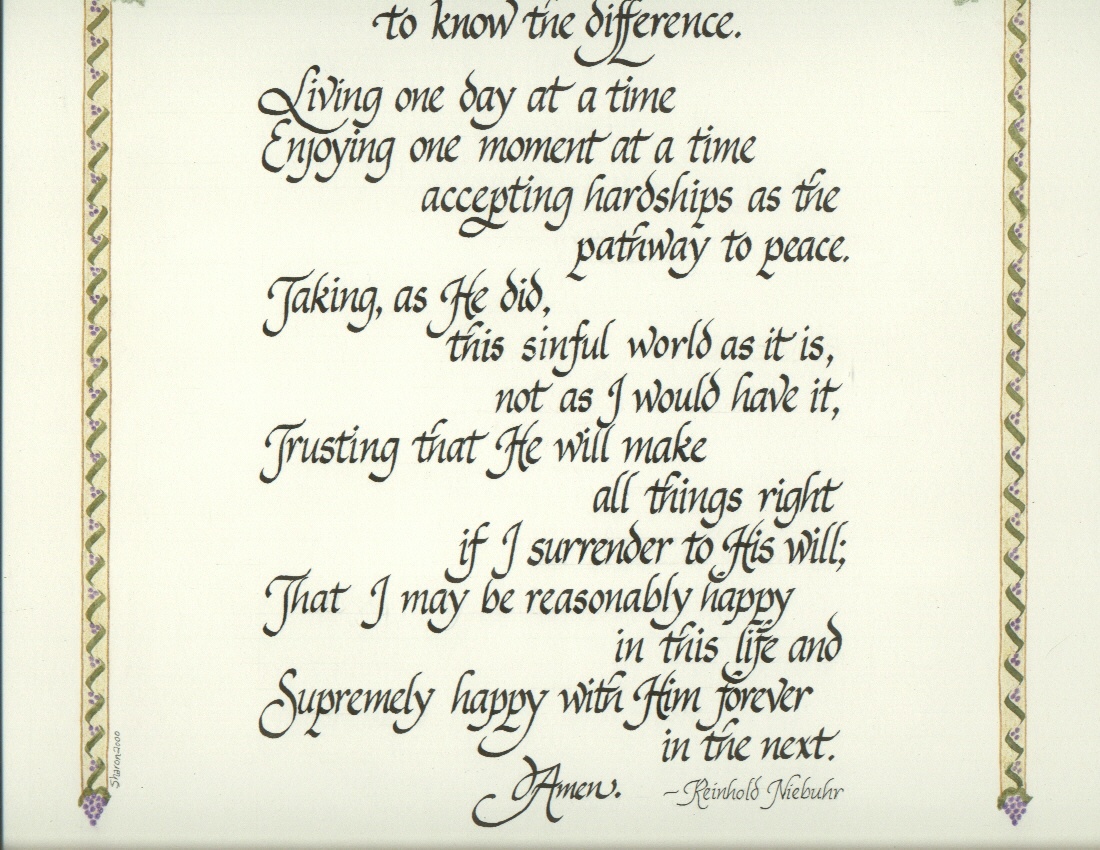 to know the difference.
Living one day at a time
Enjoying one moment at a time
accepting hardships as the
pathway to peace.
Taking, as He did,
this sinful world as it is,
not as I would have it,
Trusting that He will make
all things right
if I surrender to His will;
That I may be reasonably happy
in this life and
Supremely happy with Him forever
in the next.
Amen. ~Reinhold Niebuhr
Sharon2000